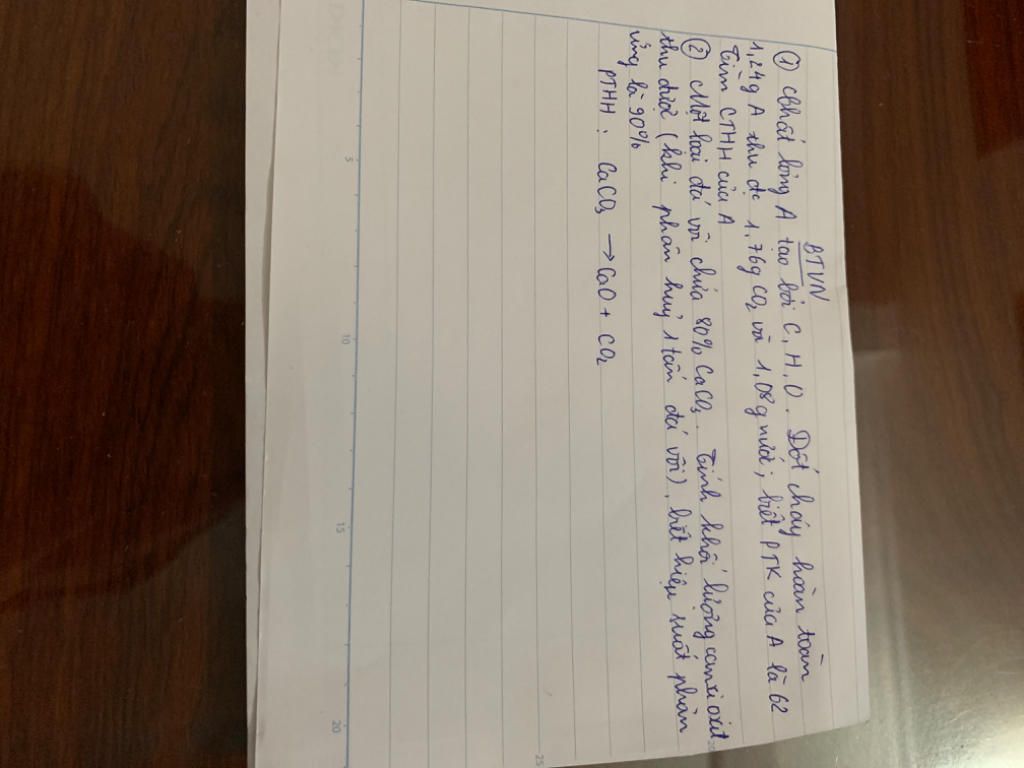 BTVN
① Chất lỏng A tạo bởi C, H, O. Đốt cháy hoàn toàn
1,24g A thu đc 1,76g CO2 và 1,08g nước, biết PTK của A là 62
Tìm CTHH của A
② Một loại đá vôi chứa 80% CaCO3. Tính khối lượng canxi oxit
thu được (khi phân huỷ 1 tấn đá vôi), biết hiệu suất phản
ứng là 90%
PTHH: CaCO3 → CaO + CO2
5
10
15
20
25